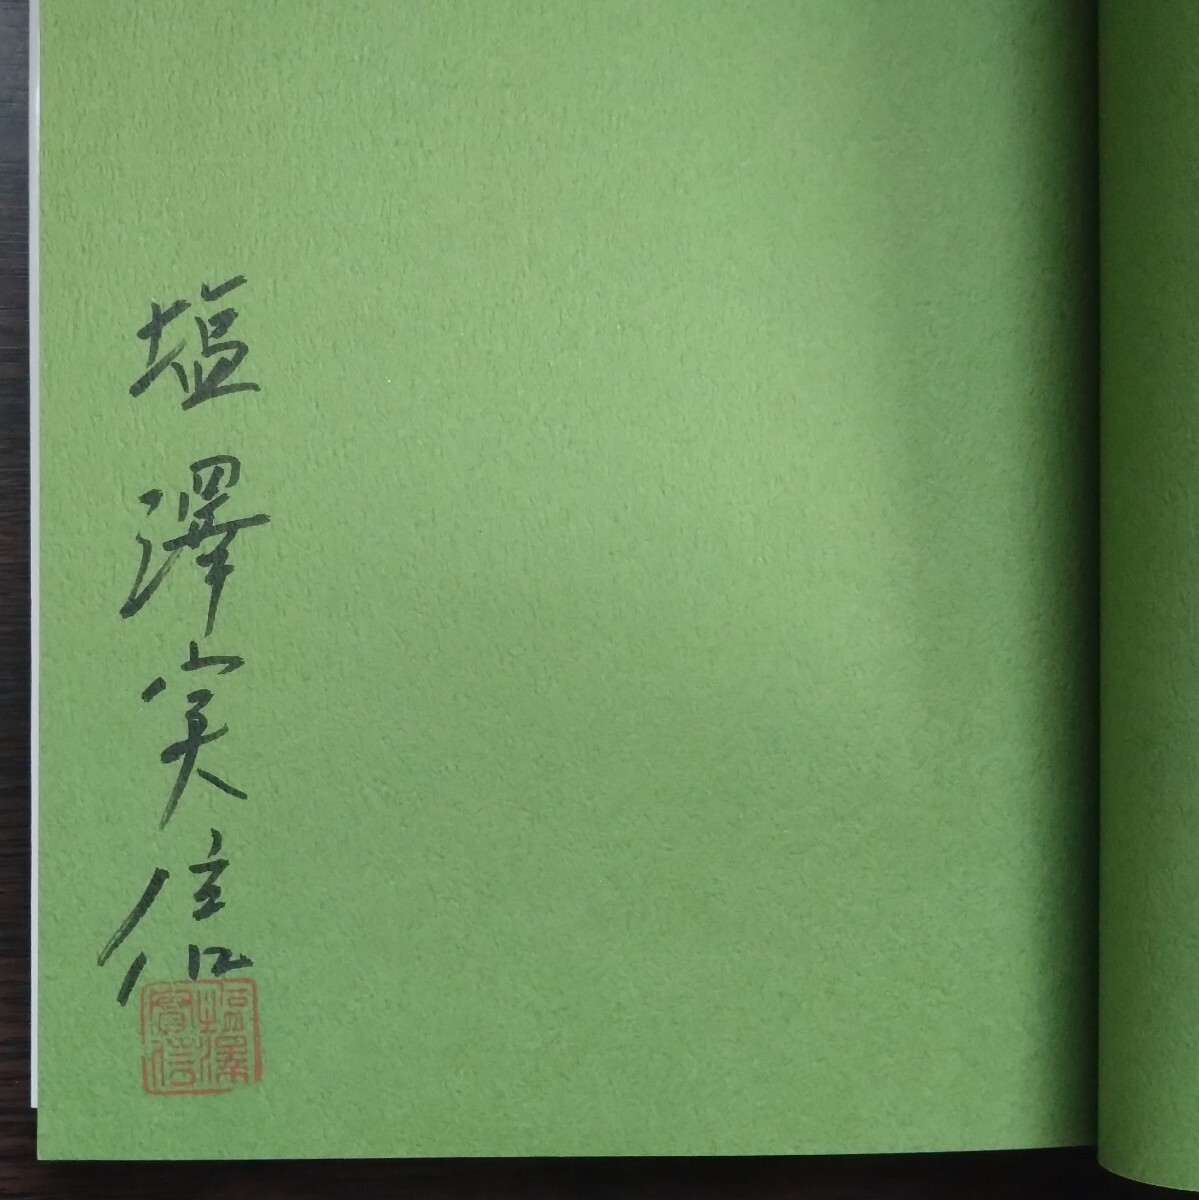 塩澤実信
塩澤
實信